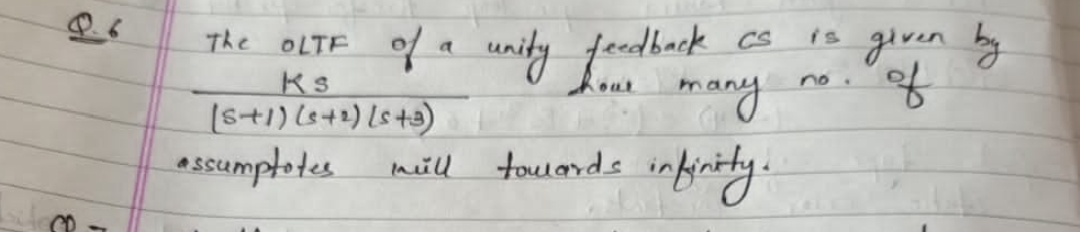 Q.6 The OLTF of a unity feedback CS is given by
KS how many no. of
(S+1)(s+2)(s+3)
assumptotes will towards infinity.